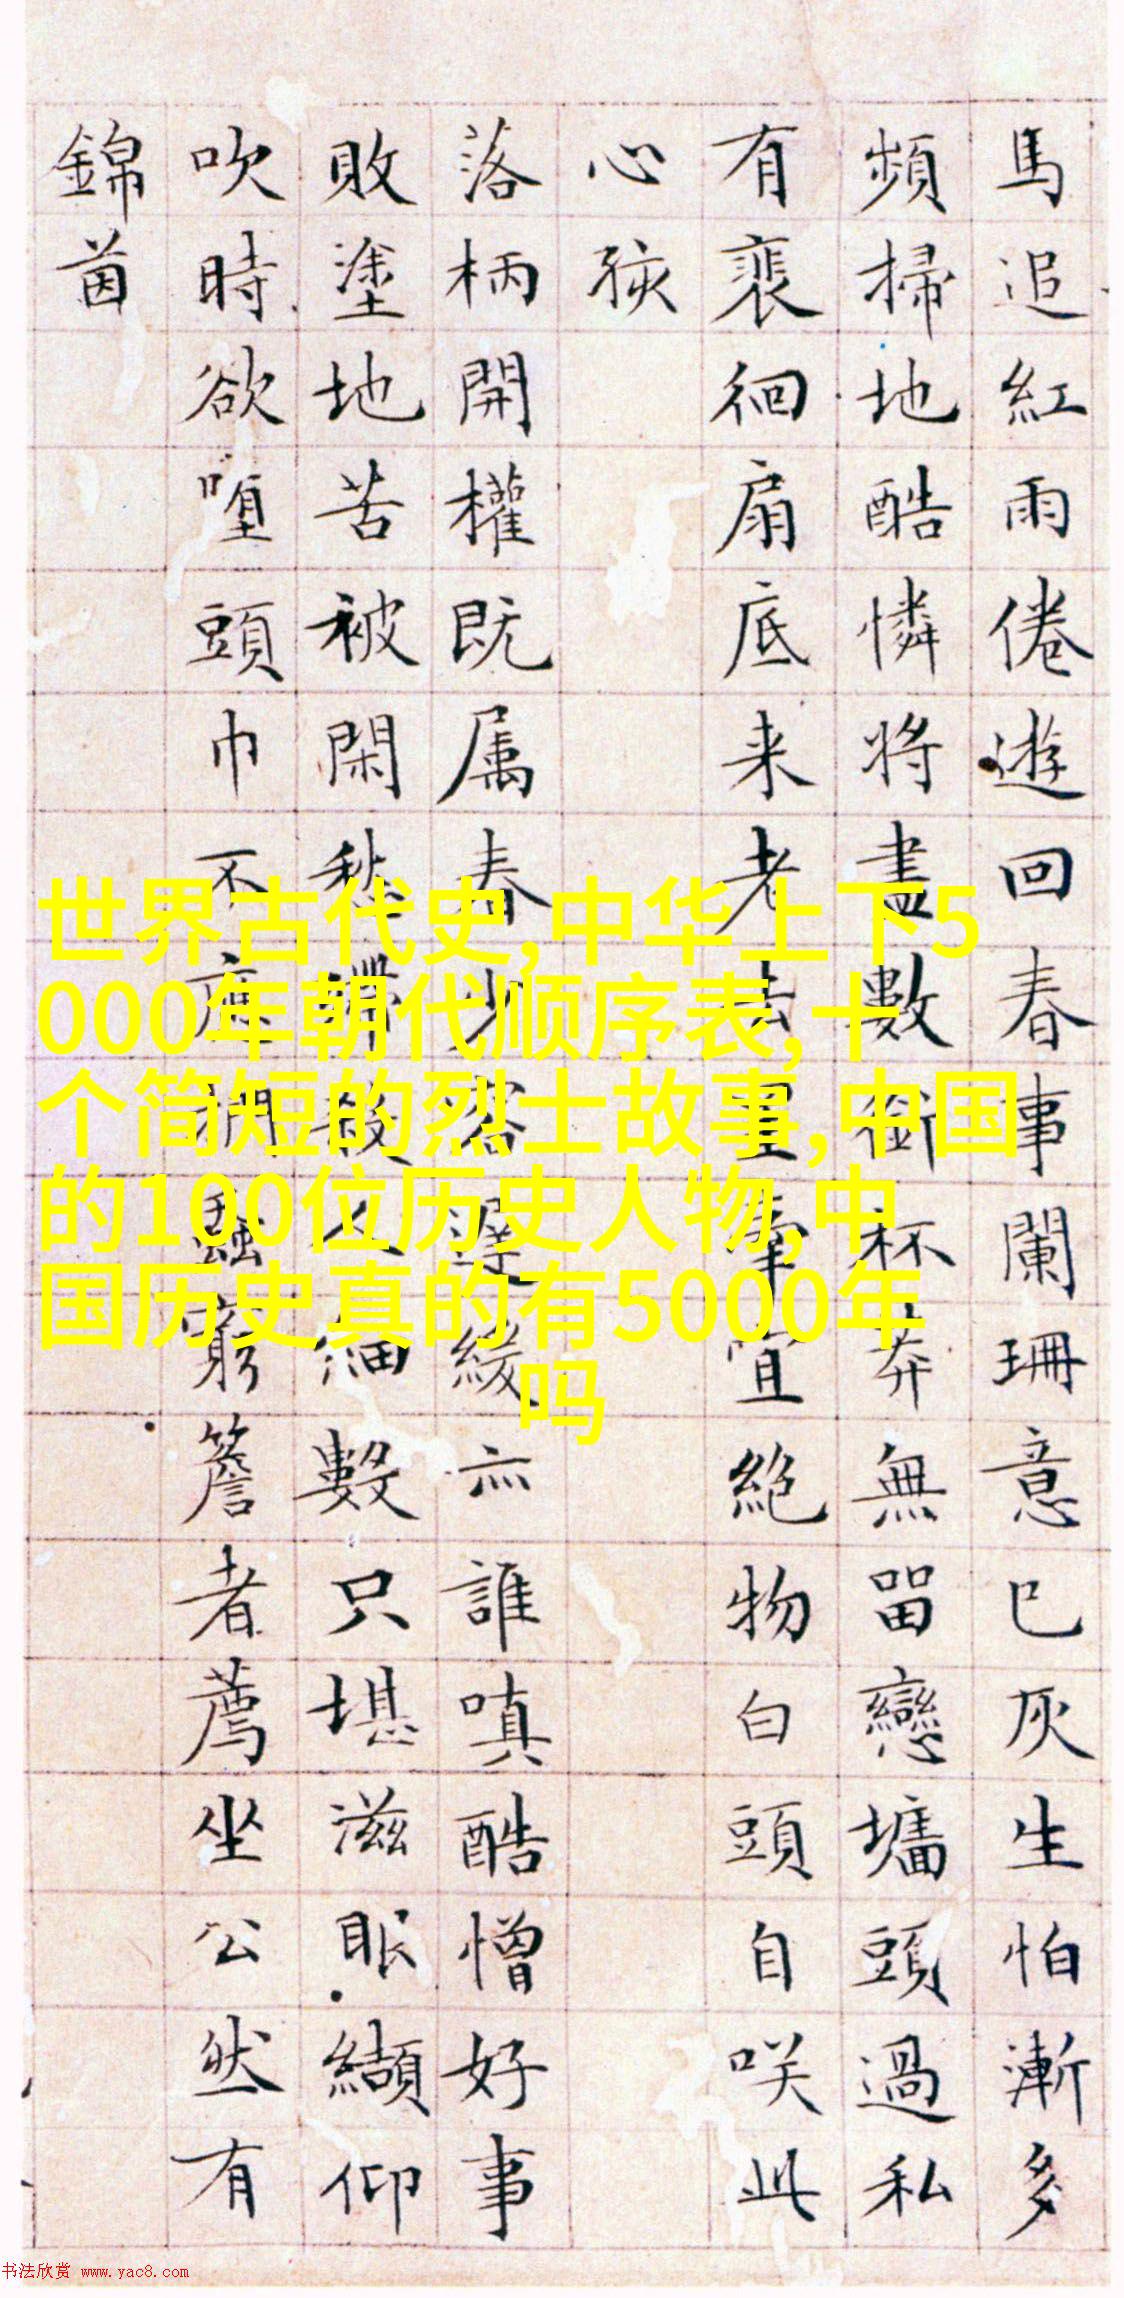 馬追紅雨倦遊回春事闌珊意已灰生怕漸多
頻掃地酷憐將盡數銜杯莽無留戀墻頭過私
有裴徊扇底来老去畫牽宜絕物白頭自咲此
心孩
落柄開權既属春少容緩亦誰嗔酷憎好事
敗塗地苦被閑愁殺人細數只堪滋眼纈仰
吹時欲堕頭巾不窮簷者薦坐公然有
錦茵
世界古代史,中华上下5
000年朝代顺序表,十
个简短的烈士故事,中国
的100位历史人物,中
国历史真的有5000年
吗
书法欣赏 www.yac8.com